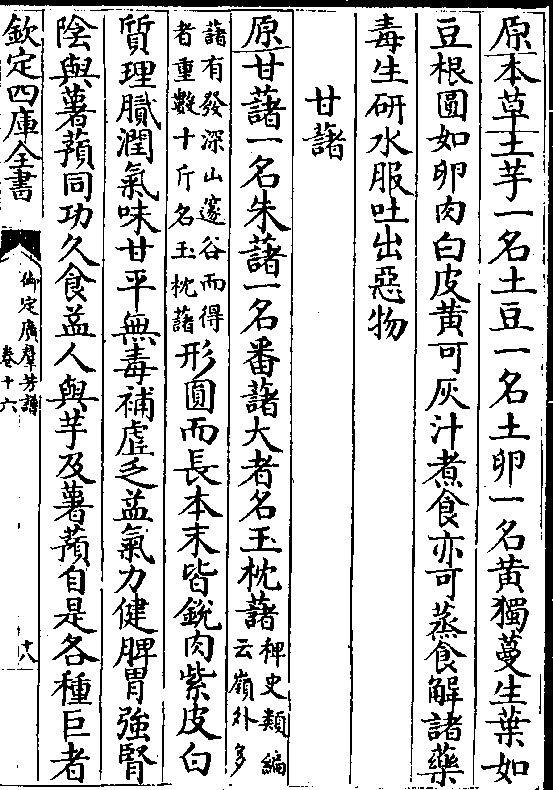 原本草土芋一名土豆一名土卵一名黄獨蔓生葉如
豆根圓如卵肉白皮黄可灰汁煮食亦可蒸食解諸藥
毒生研水服吐出惡物
甘藷
原甘藷一名朱藷一名番藷大者名玉枕藷稗史類編云嶺外多
藷有發深山邃谷而得者重數十斤名玉枕藷形圓而長本末皆銳肉紫皮白
質理膩潤氣味甘平無毒補虛乏益氣力健脾胃強腎
陰與薯蕷同功久食益人與芋及薯蕷自是各種巨者
欽定四庫全書
御定廣群芳譜
卷十六
十八